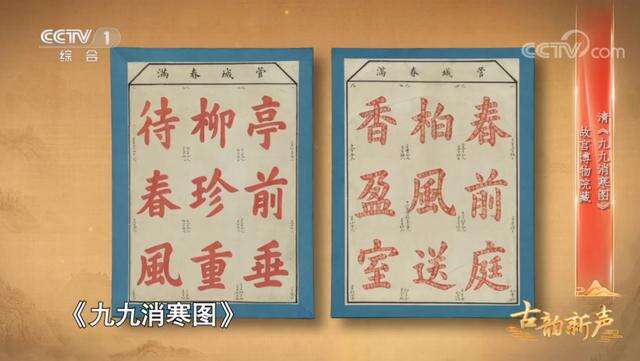 CCTV 1
综合
CCTV.com
管城春滿
亭前垂
柳珍重
待春風
管城春滿
春前庭
柏風送
香盈室
清《九九消寒图》
故宫博物院藏
《九九消寒图》
古韵新声